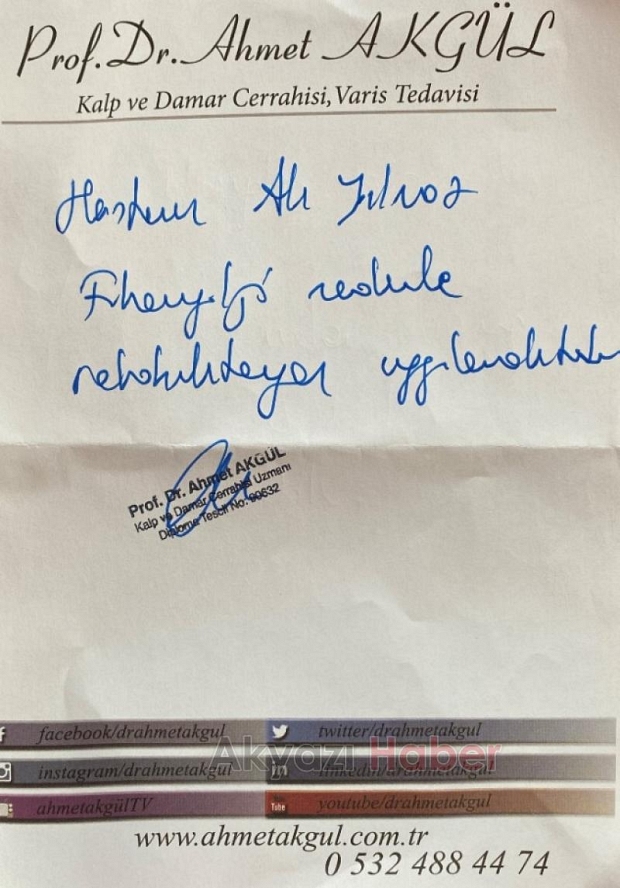 Prof. Dr. Ahmet AKGÜL
Kalp ve Damar Cerrahisi, Varis Tedavisi
Hastam Ali Yılmaz
rehabilitasyon uygulanaktadır
Prof. Dr. Ahmet AKGÜL
Kalp ve Damar Cerrahisi Uzmanı
Diploma Tescil No: 90632
facebook/drahmetakgul
twitter/drahmetakgul
Akyazı Haber
instagram/drahmetakgul
linkedin/drahmetakgul
ahmetakgülTV
youtube/drahmetakgul
www.ahmetakgul.com.tr
0 532 488 44 74